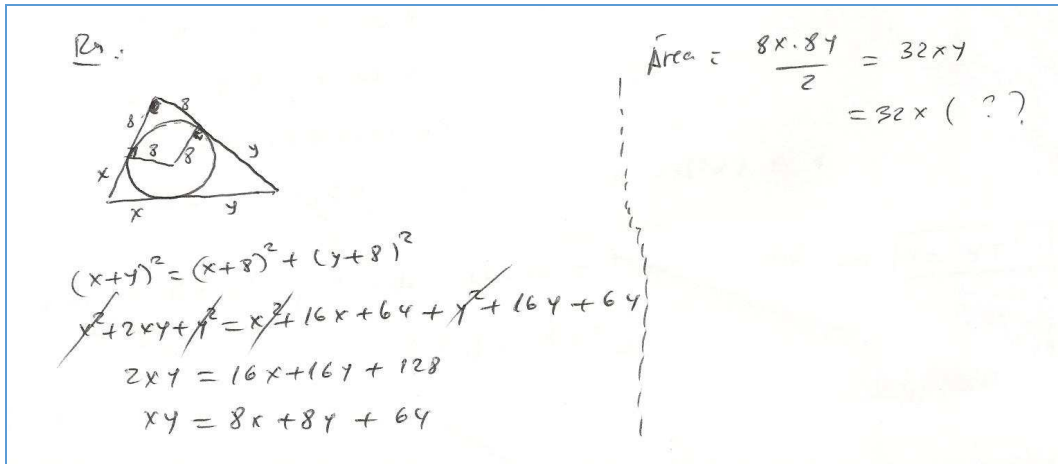 Rs:
8 8
8 8
x y
x y
(x+y)² = (x+8)² + (y+8)²
x² + 2xy + y² = x² + 16x + 64 + y² + 16y + 64
2xy = 16x + 16y + 128
xy = 8x + 8y + 64
Área = 8x · 8y / 2 = 32xy
= 32x ( ??